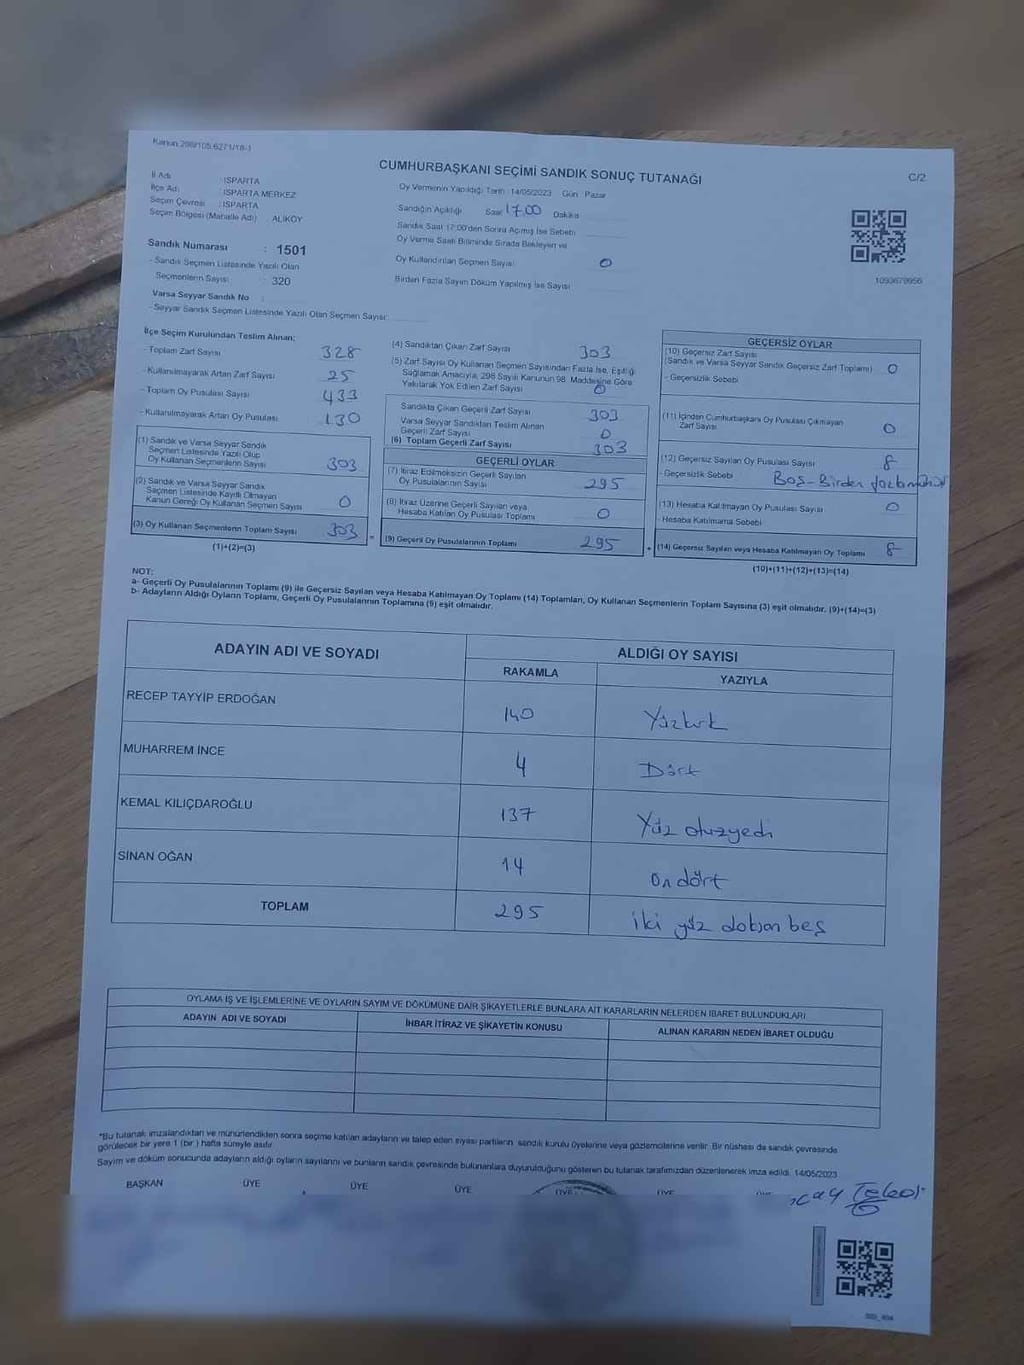 Kanun 298/105,6271/18-1
CUMHURBAŞKANI SEÇİMİ SANDIK SONUÇ TUTANAĞI
C/2
İl Adı : ISPARTA
İlçe Adı : ISPARTA MERKEZ
Seçim Çevresi : ISPARTA
Seçim Bölgesi (Mahalle Adı) : ALİKÖY
Sandık Numarası : 1501
- Sandık Seçmen Listesinde Yazılı Olan
Seçmenlerin Sayısı : 320
Varsa Seyyar Sandık No :
- Seyyar Sandık Seçmen Listesinde Yazılı Olan Seçmen Sayısı:
Oy Vermenin Yapıldığı Tarih : 14/05/2023 Gün : Pazar
Sandığın Açıldığı Saat 17.00 Dakika
Sandık Saat 17:00'den Sonra Açılmış İse Sebebi
Oy Verme Saati Bitiminde Sırada Bekleyen ve
Oy Kullandırılan Seçmen Sayısı 0
Birden Fazla Sayım Döküm Yapılmış İse Sayısı
1093679956
İlçe Seçim Kurulundan Teslim Alınan;
- Toplam Zarf Sayısı 328
- Kullanılmayarak Artan Zarf Sayısı 25
- Toplam Oy Pusulası Sayısı 433
- Kullanılmayarak Artan Oy Pusulası 130
(1) Sandık ve Varsa Seyyar Sandık
Seçmen Listesinde Yazılı Olup
Oy Kullanan Seçmenlerin Sayısı 303
(2) Sandık ve Varsa Seyyar Sandık
Seçmen Listesinde Kayıtlı Olmayan
Kanun Gereği Oy Kullanan Seçmen Sayısı 0
(3) Oy Kullanan Seçmenlerin Toplam Sayısı 303 =
(1)+(2)=(3)
(4) Sandıktan Çıkan Zarf Sayısı 303
(5) Zarf Sayısı Oy Kullanan Seçmen Sayısından Fazla İse, Eşitliği
Sağlamak Amacıyla, 298 Sayılı Kanunun 98. Maddesine Göre
Yakılarak Yok Edilen Zarf Sayısı 0
Sandıkta Çıkan Geçerli Zarf Sayısı 303
Varsa Seyyar Sandıktan Teslim Alınan
Geçerli Zarf Sayısı 0
(6) Toplam Geçerli Zarf Sayısı 303
GEÇERLİ OYLAR
(7) İtiraz Edilmeksizin Geçerli Sayılan
Oy Pusulalarının Sayısı 295
(8) İtiraz Üzerine Geçerli Sayılan veya
Hesaba Katılan Oy Pusulası Toplamı 0
(9) Geçerli Oy Pusulalarının Toplamı 295 +
GEÇERSİZ OYLAR
(10) Geçersiz Zarf Sayısı
(Sandık ve Varsa Seyyar Sandık Geçersiz Zarf Toplamı) 0
- Geçersizlik Sebebi
(11) İçinden Cumhurbaşkanı Oy Pusulası Çıkmayan
Zarf Sayısı 0
(12) Geçersiz Sayılan Oy Pusulası Sayısı 8
- Geçersizlik Sebebi Boş-Birden fazla mühür
(13) Hesaba Katılmayan Oy Pusulası Sayısı 0
- Hesaba Katılmama Sebebi
(14) Geçersiz Sayılan veya Hesaba Katılmayan Oy Toplamı 8
(10)+(11)+(12)+(13)=(14)
NOT:
a- Geçerli Oy Pusulalarının Toplamı (9) ile Geçersiz Sayılan veya Hesaba Katılmayan Oy Toplamı (14) Toplamları, Oy Kullanan Seçmenlerin Toplam Sayısına (3) eşit olmalıdır. (9)+(14)=(3)
b- Adayların Aldığı Oyların Toplamı, Geçerli Oy Pusulalarının Toplamına (9) eşit olmalıdır.
ADAYIN ADI VE SOYADI ALDIĞI OY SAYISI
RAKAMLA YAZIYLA
RECEP TAYYİP ERDOĞAN 140 Yüzkırk
MUHARREM İNCE 4 Dört
KEMAL KILIÇDAROĞLU 137 Yüz otuzyedi
SİNAN OĞAN 14 On dört
TOPLAM 295 iki yüz doksan beş
OYLAMA İŞ VE İŞLEMLERİNE VE OYLARIN SAYIM VE DÖKÜMÜNE DAİR ŞİKAYETLERLE BUNLARA AİT KARARLARIN NELERDEN İBARET BULUNDUKLARI
ADAYIN ADI VE SOYADI İHBAR İTİRAZ VE ŞİKAYETİN KONUSU ALINAN KARARIN NEDEN İBARET OLDUĞU
*Bu tutanak imzalandıktan ve mühürlendikten sonra seçime katılan adayların ve talep eden siyasi partilerin sandık kurulu üyelerine veya gözlemcilerine verilir. Bir nüshası da sandık çevresinde
görülecek bir yere 1 (bir ) hafta süreyle asılır.
Sayım ve döküm sonucunda adayların aldığı oyların sayılarını ve bunların sandık çevresinde bulunanlara duyurulduğunu gösteren bu tutanak tarafımızdan düzenlenerek imza edildi. 14/05/2023
BAŞKAN ÜYE ÜYE ÜYE ÜYE ÜYE